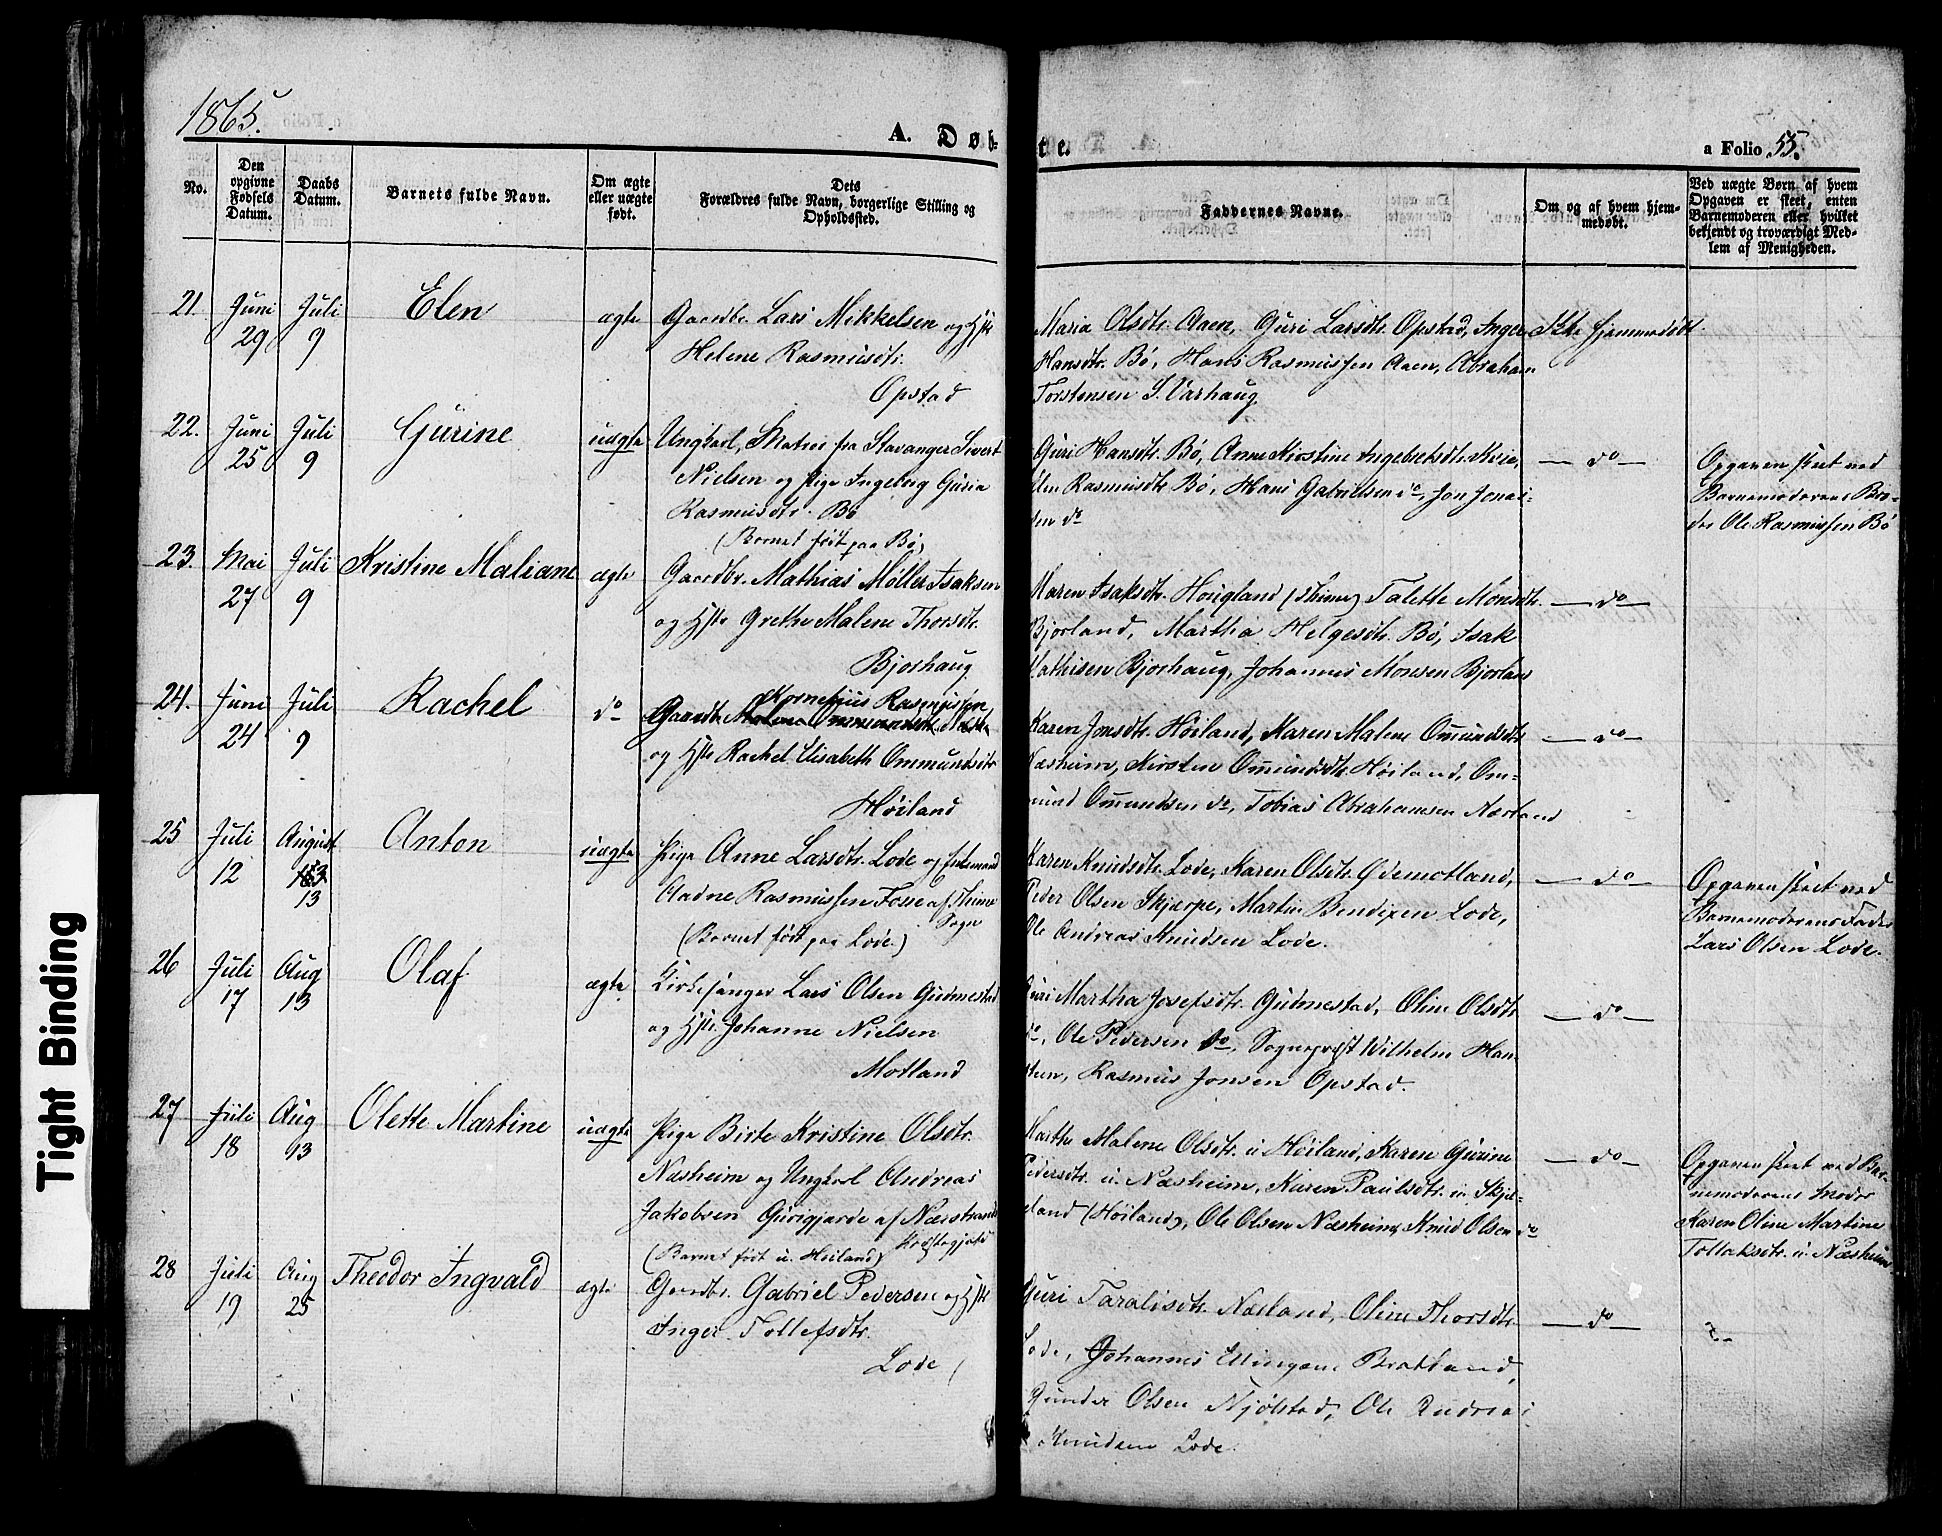 1865.
A. Døb-
te.
a Folio 55.
No.
Den opgivne Fødsels Datum.
Daabs Datum.
Barnets fulde Navn.
Om ægte eller uægte født.
Dets Forældres fulde Navn, borgerlige Stilling og Opholdssted.
Faddernes Navne.
Om og af hvem hjemmedøbt.
Ved uægte Børn af hvem Opgaven er skeet, enten Barnemoderen eller hvilket bekjendt og troværdigt Medlem af Menigheden.
21. Juni 29 Juli 9 Elen ægte
Gaardbr. Lars Mikkelsen og Hstr
Helene Rasmusdtr.
Opstad
Maria Olsdtr. Aaen, Guri Larsdtr. Opstad, Inger
Hansdtr. Bø, Hans Rasmussen Aaen, Abraham
Torstensen S. Varhaug.
Ikke hjemmedøbt
22. Juni 25 Juli 9 Gurine uægte
Ungkarl, Matros fra Stavanger Sivert
Nielsen og Pige Ingeborg Guria
Rasmusdtr. Bø
(Barnet født paa Bø)
Guri Hansdtr. Bø, Anne Kirstine Ingebretsdtr.
Elen Rasmusdtr Bø, Hans Gabrielsen do, Jon Jonas-
sen do
— do —
Opgaven skeet ved
Barnemoderens Bro-
der Ole Rasmussen Bø
23. Mai 27 Juli 9 Kristine Maliane ægte
Gaardbr. Mathias Møller Isaksen
og Hstr Grethe Malene Thorsdtr.
Bjorhaug
Maren Isaksdtr. Hougland (Thime) Talette Monsdtr.
Bjorland, Martha Helgesdtr. Bø, Isak
Mathisen Bjorhaug, Johannes Monsen Bjorland
— do —
24. Juni 24 Juli 9 Rachel do
Kornelius Rasmussen
Gaardbr.
og Hstr Rachel Elisabeth Ommundsdtr
Høiland
Karen Jonsdtr. Høiland, Maren Malene Omundsdtr
Næsheim, Kirsten Omundsdtr. Høiland, Om-
mund Omundsen do, Tobias Abrahamsen Nærland
— do —
25 Juli 12 August 13 Anton uægte
Pige Anne Larsdtr. Lode og Enkemand
Aadne Rasmussen Fosse af Thime
Sogn
(Barnet født paa Lode.)
Karen Knudsdtr. Lode, Karen Olsdtr. Ødemotland,
Peder Olsen Skjærpe, Martin Bendixen Lode,
Ole Andreas Knudsen Lode.
— do —
Opgaven skeet ved
Barnemoderens Fader
Lars Olsen Lode.
26 Juli 17 Aug 13 Olaf ægte
Kirkesanger Lars Olsen Gudmestad
og Hstr. Johanne Nielsen
Motland
Guri Martha Josefsdtr. Gudmestad, Oline Olsdtr
do, Ole Pedersen do, Sognepræst Wilhelm Han-
steen, Rasmus Jonsen Opstad.
— do —
27 Juli 18 Aug 13 Olette Martine uægte
Pige Birte Kristine Olsdtr.
Næsheim og Ungkarl Andreas
Jakobsen Gurigjerde af Nærstrands
(Barnet født u. Høiland)
Marthe Malene Olsdtr. u Høiland, Karen Gurine
Pedersdtr. u. Næsheim, Karen Paulsdtr. u. Skjæ-
eland (Høiland), Ole Olsen Næsheim, Knud Olsen do
— do —
Opgaven skeet ved Bar-
nemoderens Moder
Karen Oline Martine
Tollaksdtr. u. Næsheim
28 Juli 19 Aug 25 Theodor Ingvald ægte
Gaardbr. Gabriel Pedersen og Hstr
Inger Tollefsdtr.
Lode
Guri Taraldsdtr. Nærland, Oline Thorsdtr
Lode, Johannes Ellingsen Bratland,
Gunder Olsen Njølstad, Ole Andreas
Knudsen Lode.
— do —
Tight Binding